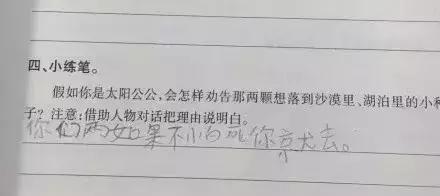 四、小练笔。
假如你是太阳公公,会怎样劝告那两颗想落到沙漠里、湖泊里的小种
子?注意:借助人物对话把理由说明白。
你们两如果不 你 去。